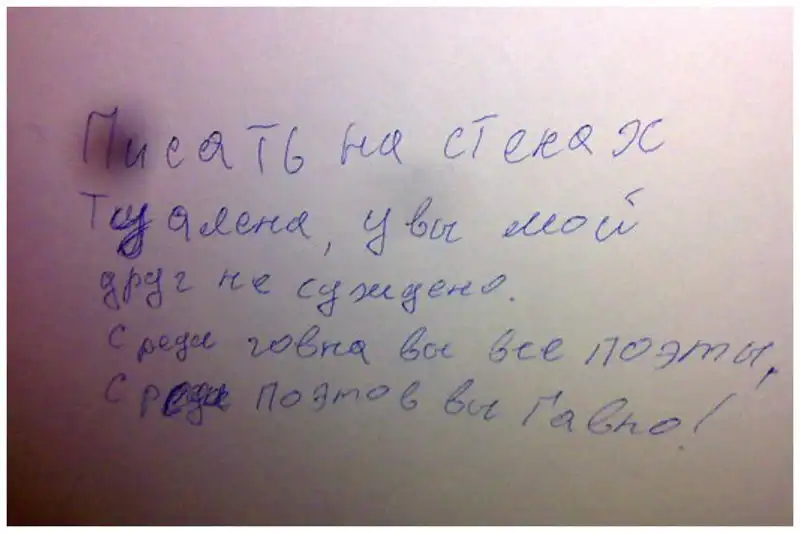 Писать на стенах
Туалена, увы мой
друг не суждено.
Среди говна вы все поэты,
Среди поэтов вы Гавно!